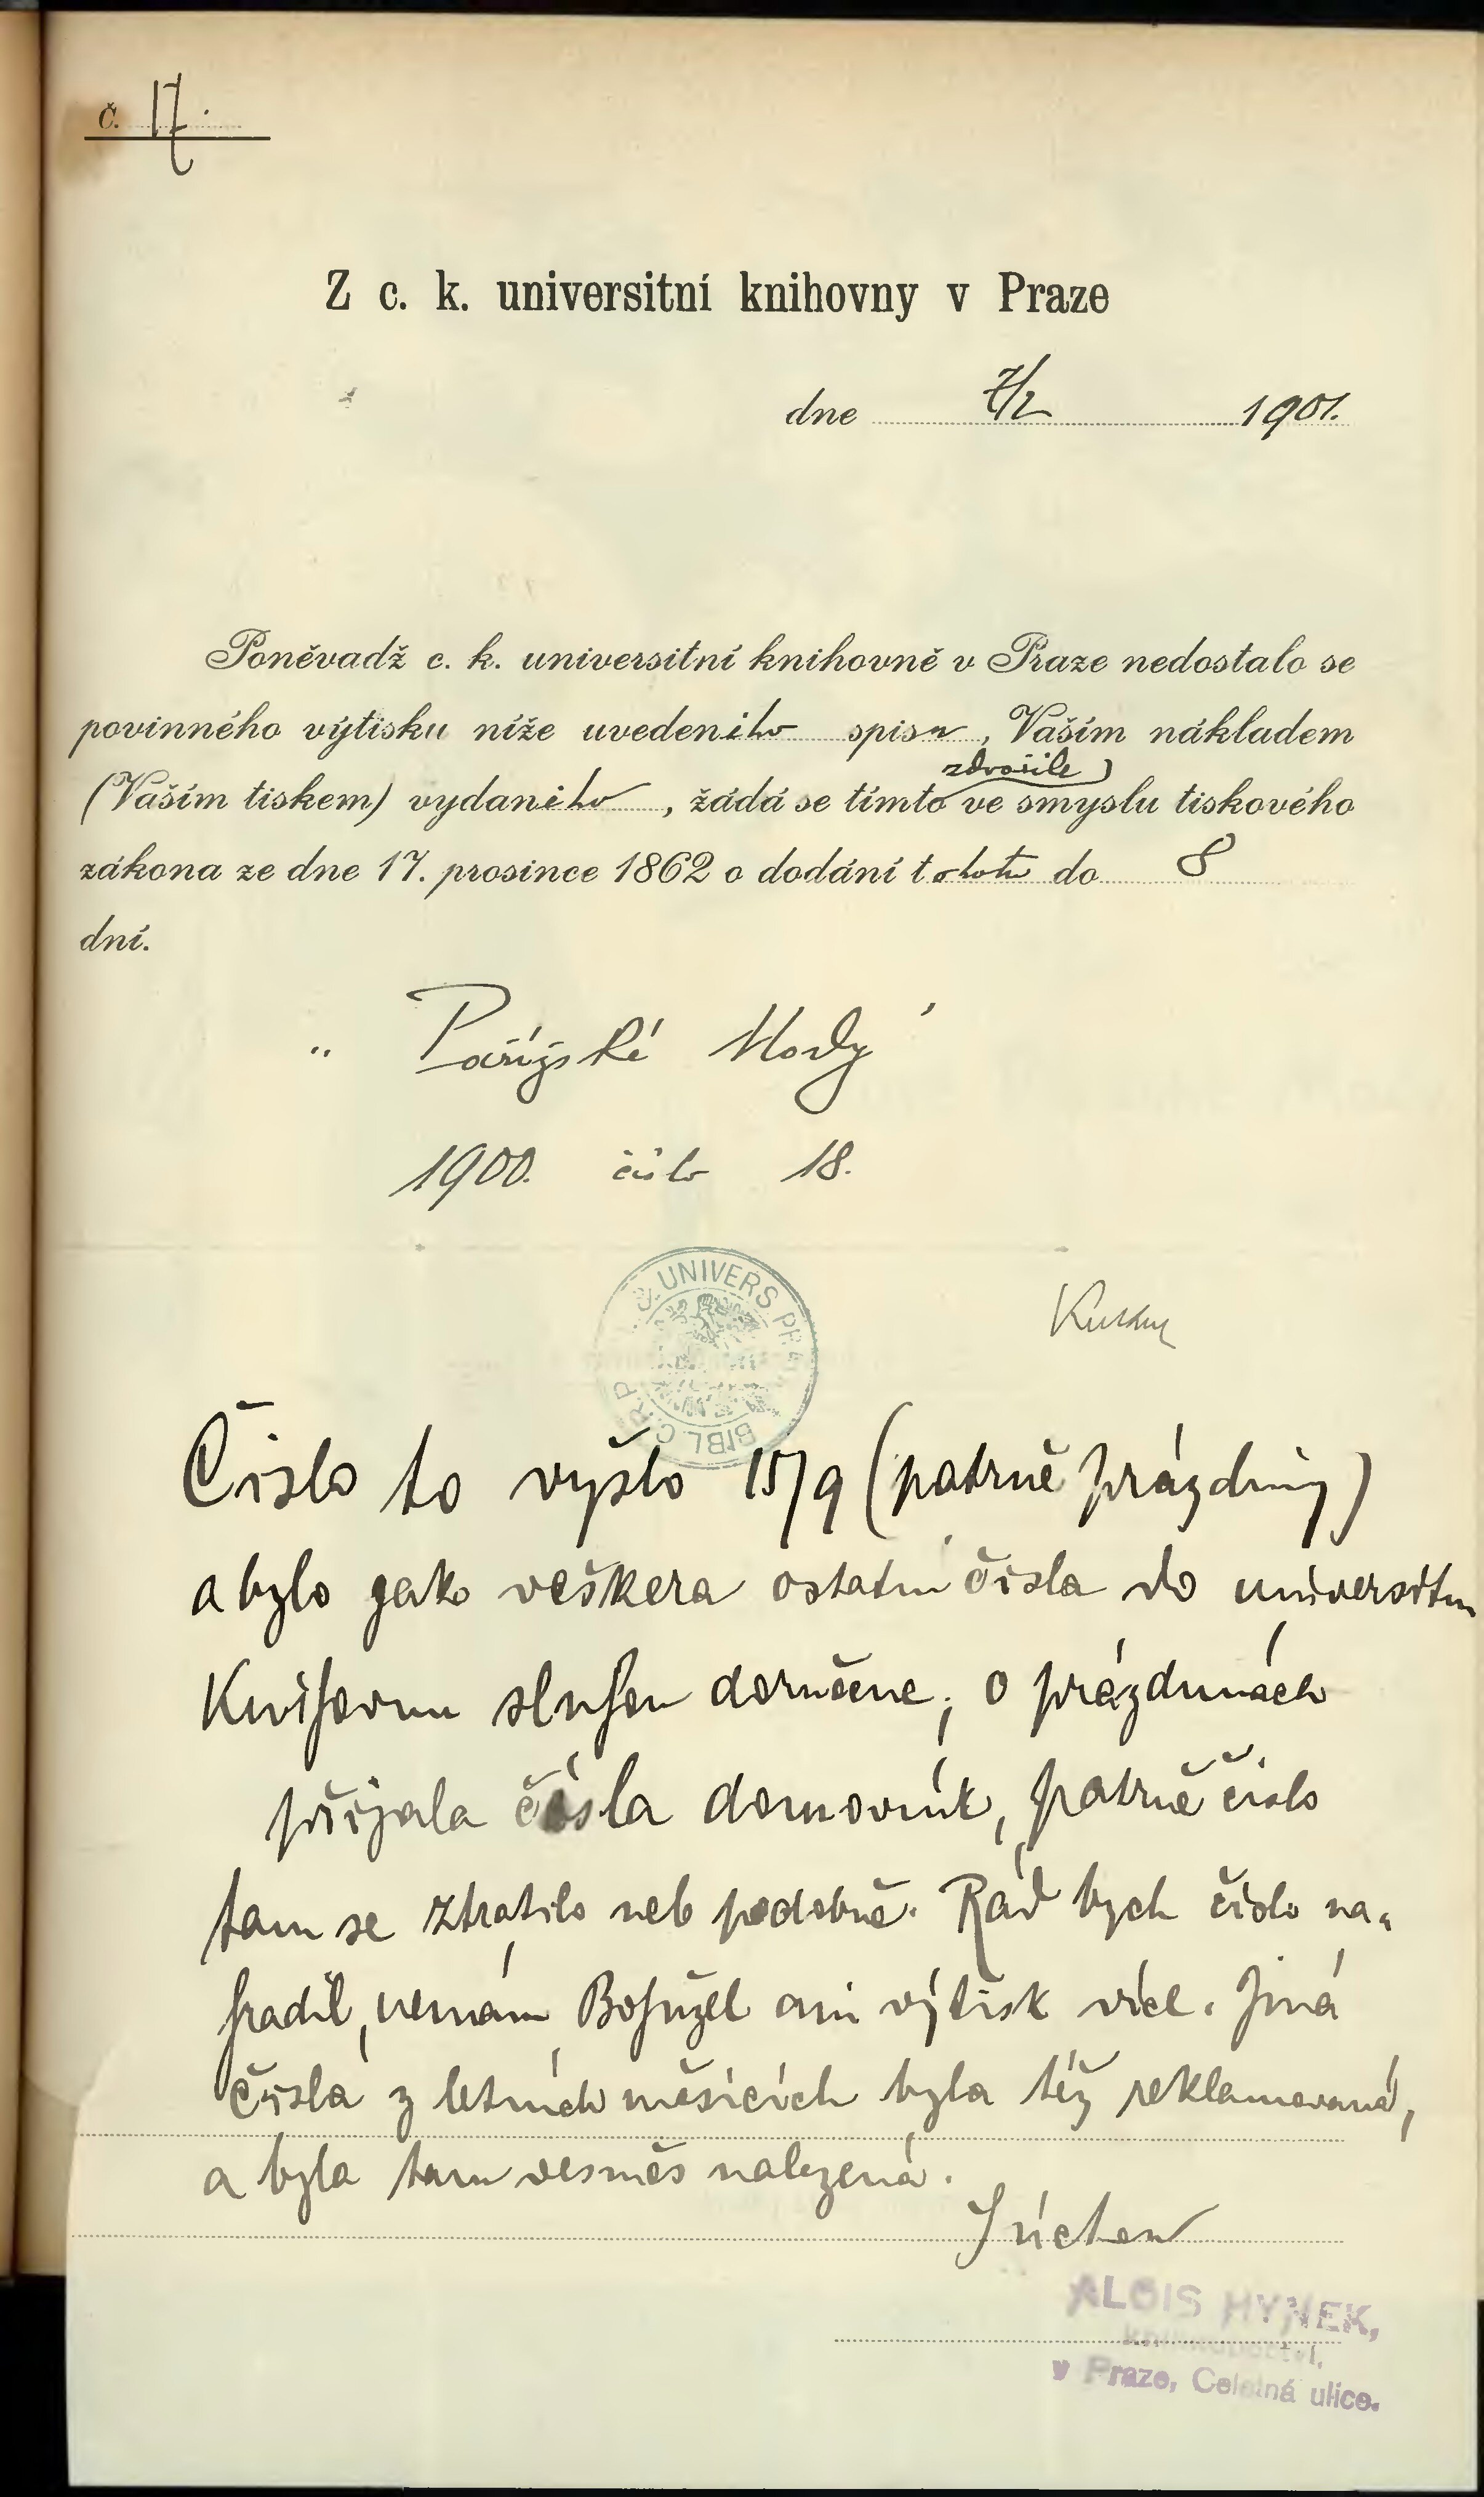 Č. 17.
Z c. k. universitní knihovny v Praze
dne 7/2 1901.
Poněvadž c. k. universitní knihovně v Praze nedostalo se
povinného výtisku níže uvedeného spisu, Vaším nákladem
zdvořile
(Vaším tiskem) vydaného, žádá se tímto ve smyslu tiskového
zákona ze dne 17. prosince 1862 o dodání tohoto do 8
dní.
„Pařížské Mody“
1900. číslo 18.
C. UNIVERS PR
BIBL. C. R. P
Číslo to vyšlo 15/9 (patrně prázdniny)
a bylo jako veškera ostatní čísla do universitní
Knihovnu sluhou doručene; o prázdninách
přijala čísla domovník, patrně číslo
tam se ztratilo neb podobně. Rád bych číslo na„
hradil, nemám Bohužel ani výtisk více. Jiná
čísla z letních měsicích byla též reklamovaná,
a byla tam vesměs nalezená.
S úctou
ALOIS HYNEK,
knihkupectví,
v Praze, Celetná ulice.